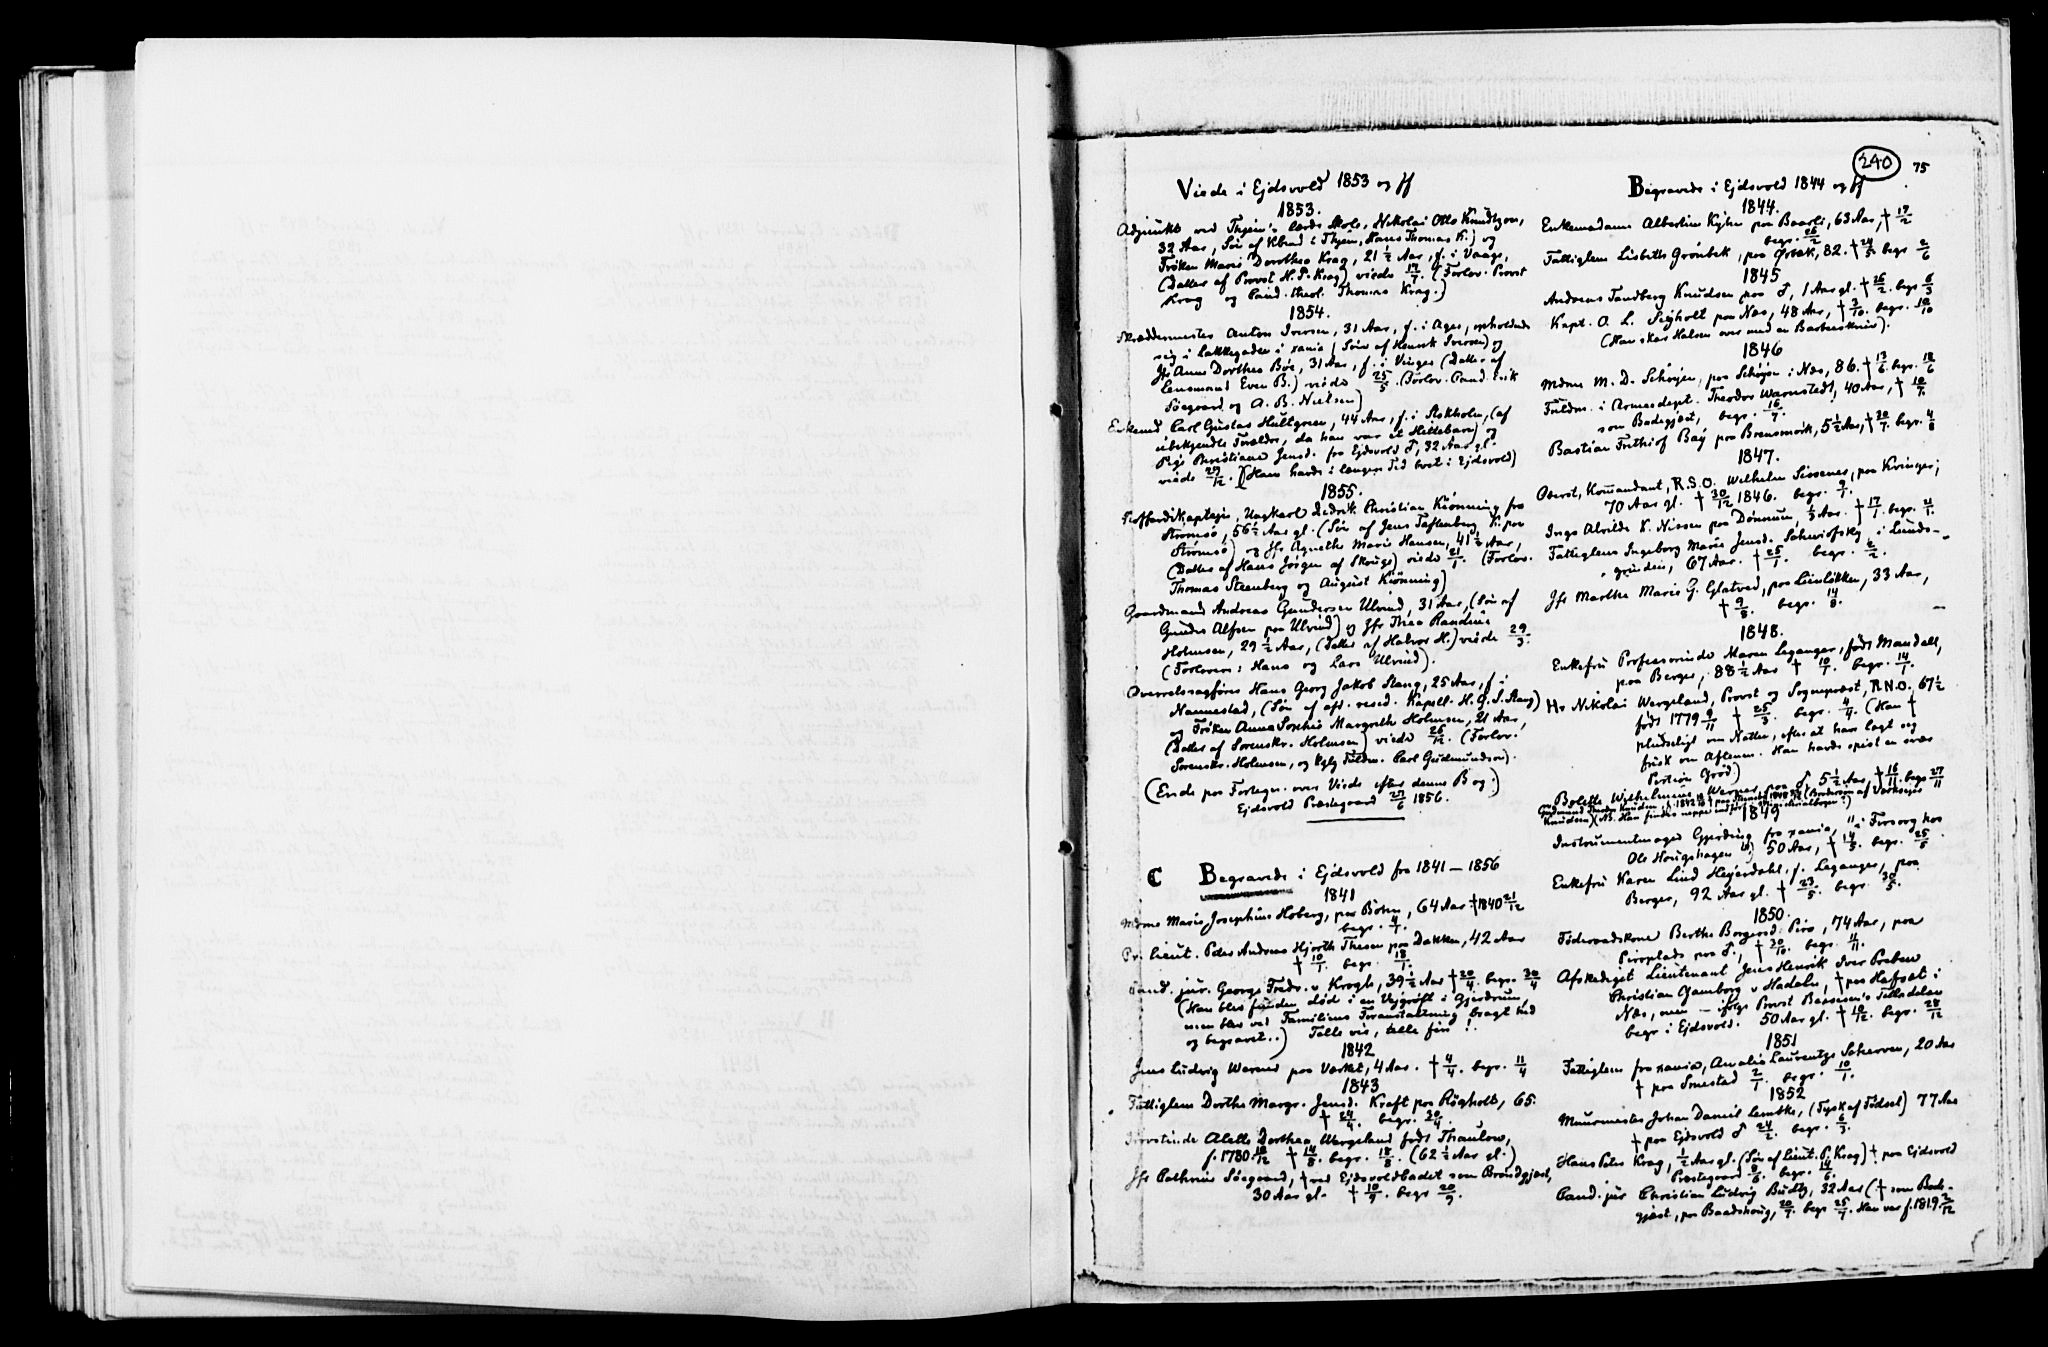 240
75
Viede i Ejdsvold 1853 og ff
1853.
Adjunkt ved Thjem's lærde Skole, Nikolai Otto Knudtzon,
32 Aar, Søn af Kbmd i Thjem, Hans Thomas K.) og
Frøken Marie Dorothea Krag, 21 1/2 Aar, f. i Vaage,
(Datter af Provst H. P. Krag) viede 17/7. (Forlov. Provst
Krag og Cand. theol. Thomas Krag.)
1854.
Skræddermester Anton Iversen, 31 Aar, f. i Ager, opholdende
sig i Lakkegaden i xania (Søn af Henrik Iversen) og
Jfr Anne Dorthea Bøe, 31 Aar, f. i Vinger (Datter af
Lensmand Even B.) viede 25/5. Forlov. Cand. Erik
Søegaard og A. B. Nielsen)
Enkemd Carl Gustav Hultgreen, 44 Aar, f. i Stokholm, (af
ubekjendte Forældre, da han var et Hittebarn) og
Pige Christiane Jensd. fra Ejdsvold ♂, 32 Aar gl.
viede 29/12. (Han havde i længere Tid boet i Ejdsvold)
1855.
Koffardikaptajn, Ungkarl Didrik Christian Kiønning fra
Strømsø, 56 1/2 Aar gl. (Søn af Jens Teftenberg K. paa
Strømsø) og Jfr Agnethe Marie Hansen, 41 1/2 Aar,
(Datter af Hans Jørgen af Skouge) viede 21/1. (Forlov.
Thomas Steenberg og August Kiønning)
Gaardmand Andreas Gundersen Ulvind, 31 Aar, (Søn af
Gunder Alfsen paa Ulvind) og Jfr Thea Randine
Holmsen, 29 1/2 Aar, (Datter af Halvor H.) viede 29/3.
(Forlovere: Hans og Lars Ulvind).
Overretssagfører Hans Georg Jakob Stang, 25 Aar, f. i
Nannestad, (Søn af afd. resid. Kapell. H. G. J. Stang)
og Frøken Anna Sophie Margrethe Holmsen, 21 Aar,
(Datter af Sorenskr. Holmsen) viede 26/12. (Forlov.
Sorenskr. Holmsen, og Kglg Fuldm. Carl Gudmundson).
(Ende paa Fortegn. over Viede efter denne Bog.)
Ejdsvold Præstegaard 27/6 1856.
C Begravede i Ejdsvold fra 1841 – 1856
1841
Mdme Marie Josephine Hoberg, paa Bøhn, 64 Aar †1840 21/12
begr. 4/1.
Pr. Lieut. Peder Andreas Hjorth Thesen paa Dakken, 42 Aar
† 10/1. begr. 18/1.
Cand. jur. George Fredr. v Krogh, 39 1/2 Aar † 20/4. begr. 30/4
(Han blev funden død i en Vejgrøft i Gjerdrum,
men blev ved Familiens Foranstaltning bragt hid
og begravet..) Talle vis, talle fin!
1842
Jens Ludvig Werner paa Værket, 4 Aar. † 4/4. begr. 11/4
1843
Fattiglem Dorthe Margr. Jensd. Kraft paa Røgholt, 65.
† 24/4. begr. 30/4.
Provstinde Alette Dorthea Wergeland født Thaulow,
f. 1780 18/12 † 14/8. begr. 18/8. (62 1/2 Aar gl.)
Jfr Cathrine Søegaard, † ved Ejdsvoldbadet som Brøndgjæst,
30 Aar gl. † 10/9. begr. 20/9.
Begravede i Ejdsvold 1844 og ff
1844.
Enkemadame Albertine Kyhn paa Baarli, 63 Aar, † 17/2
begr. 26/2
Fattiglem Lisbeth Grønbek, paa Ørbæk, 82. † 24/5. begr 2/6
1845
Andreas Tandberg Knudsen paa ♂, 1 Aar gl. † 26/2. begr 6/3
Kapt. O. L. Sejholt paa Næs, 48 Aar, † 3/10. begr. 10/10
(Han skar Halsen over med en Barberkniv).
1846
Mdme M. D. Schøjen, paa Schøjen i Næs, 86. † 13/6. begr. 18/6
Fuldm. i Armeedept. Theodor Warnstedt, 40 Aar, † 10/7.
som Badegjæst, begr. 16/7.
Bastian Frithiof Bay paa Brensmork, 5 1/2 Aar, † 30/7. begr. 4/8
1847.
Oberst, Komandant, R.S.O. Wilhelm Sissener, paa Kvinger;
70 Aar gl. † 30/12 1846. begr. 9/1.
Inga Alvilde K. Nissen paa Dønnum, 1/3 Aar. † 17/1. begr. 21/1.
Fattiglem Ingeborg Marie Jensd. Schwiofsky i Lunds-
grinden, 67 Aar. † 25/1. begr. 2/2.
Jfr Marthe Marie G. Glatved, paa Lienløkken, 33 Aar,
† 9/8. begr. 14/8.
1848.
Enkefru Professorinde Maren Leganger, født Mandall,
paa Berger, 88 1/2 Aar † 10/1. begr. 14/1.
Hr Nikolai Wergeland, Provst og Sognepræst, R.N.O. 67 1/2
født 1779 9/11 † 25/3. begr. 4/4. (Han †
pludseligt om Natten, efter at have lagt sig
frisk om Aftenen. Han havde spist en svær
Portion Grød)
Bolette Wilhelmine Werner paa ♂ 5 1/2 Aar, † 16/11. begr 27/11
Knudsen) (NB. Han findes neppe indført i Ministerialbogen!)
1849
Instrumentmager Gjerding fra xania, i Forsorg hos
Ole Hougshagen 50 Aar, † 14/5. begr. 25/5
Enkefru Karen Lind Hejerdahl, f. Leganger, paa
Berger, 92 Aar gl. † 23/5. begr 30/5.
1850.
Føderaadskone Berthe Borgersd. Piro, 74 Aar, paa
Piroplads paa ♂, † 30/10. begr. 11/11.
Afskediget Lieutenant Jens Henrik Iver Preben
Christian Gamborg v Hadeln, † paa Hafsæt i
Næs, men – ifølge Provst Baasen's Tilladelse
begr i Ejdsvold. 50 Aar gl. † 18/12. begr. 28/12
1851
Fattiglem fra xania, Amalia Laurentze Scherven, 20 Aar
† paa Smestad 2/1. begr. 10/1.
1852
Muurmester Johan Daniel Lembke, (Tysk af Fødsel) 77 Aar
† paa Ejdsvold ♂ 24/2. begr. 6/3.
Hans Peter Krag, 1/2 Aar gl. (Søn af Lieut. P. Krag) † paa Ejdsvold
Præstegaard 8/6. begr. 14/6.
Cand. jur Christian Ludvig Budtz, 32 Aar († som Bade-
gjæst, paa Baadshoug, 20/7. begr 25/7. Han var f. 1819 2/12